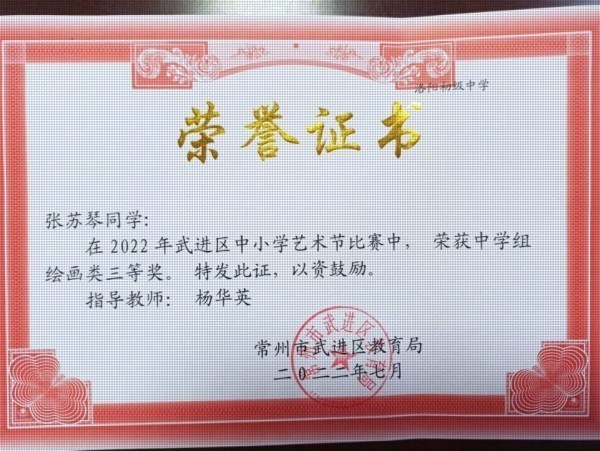 洛阳初级中学
荣誉证书
张苏琴同学：
在2022年武进区中小学艺术节比赛中， 荣获中学组
绘画类三等奖。 特发此证，以资鼓励。
指导教师： 杨华英
常州市武进区教育局
二〇二二年七月
常州市武进区教育局